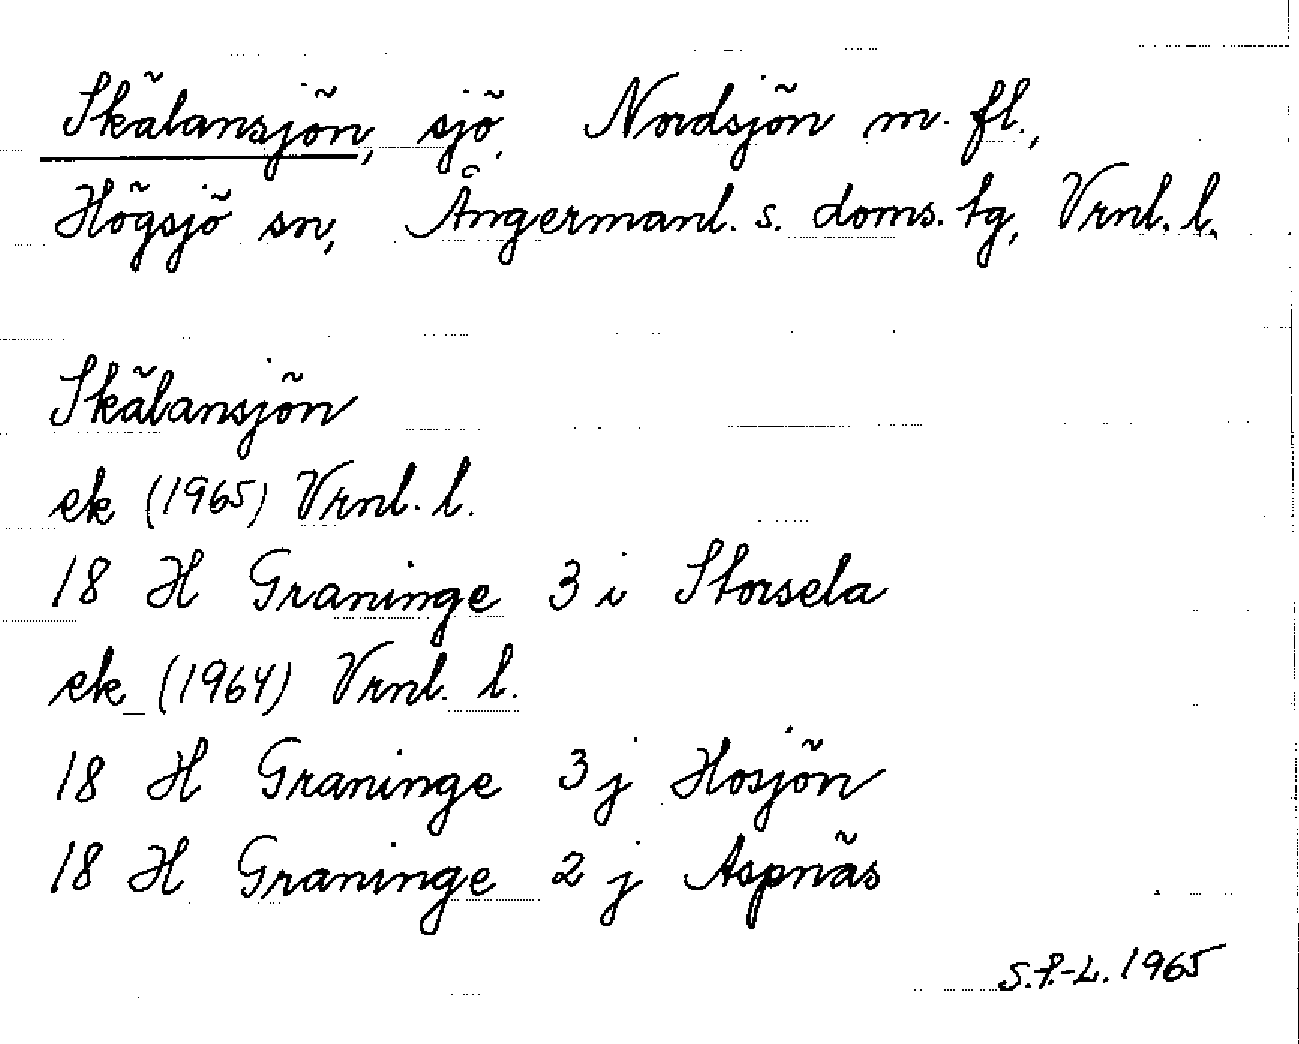 Skälansjön, sjö, Nordsjön m. fl.,
Högsjö sn, Ångermanl. s. doms. tg, Vrnl. l.
Skälansjön
ek (1965) Vrnl. l.
18 H Graninge 3 i Storsela
ek (1964) Vrnl. l.
18 H Graninge 3 j Hosjön
18 H Graninge 2 j Aspnäs
S.P.-L. 1965